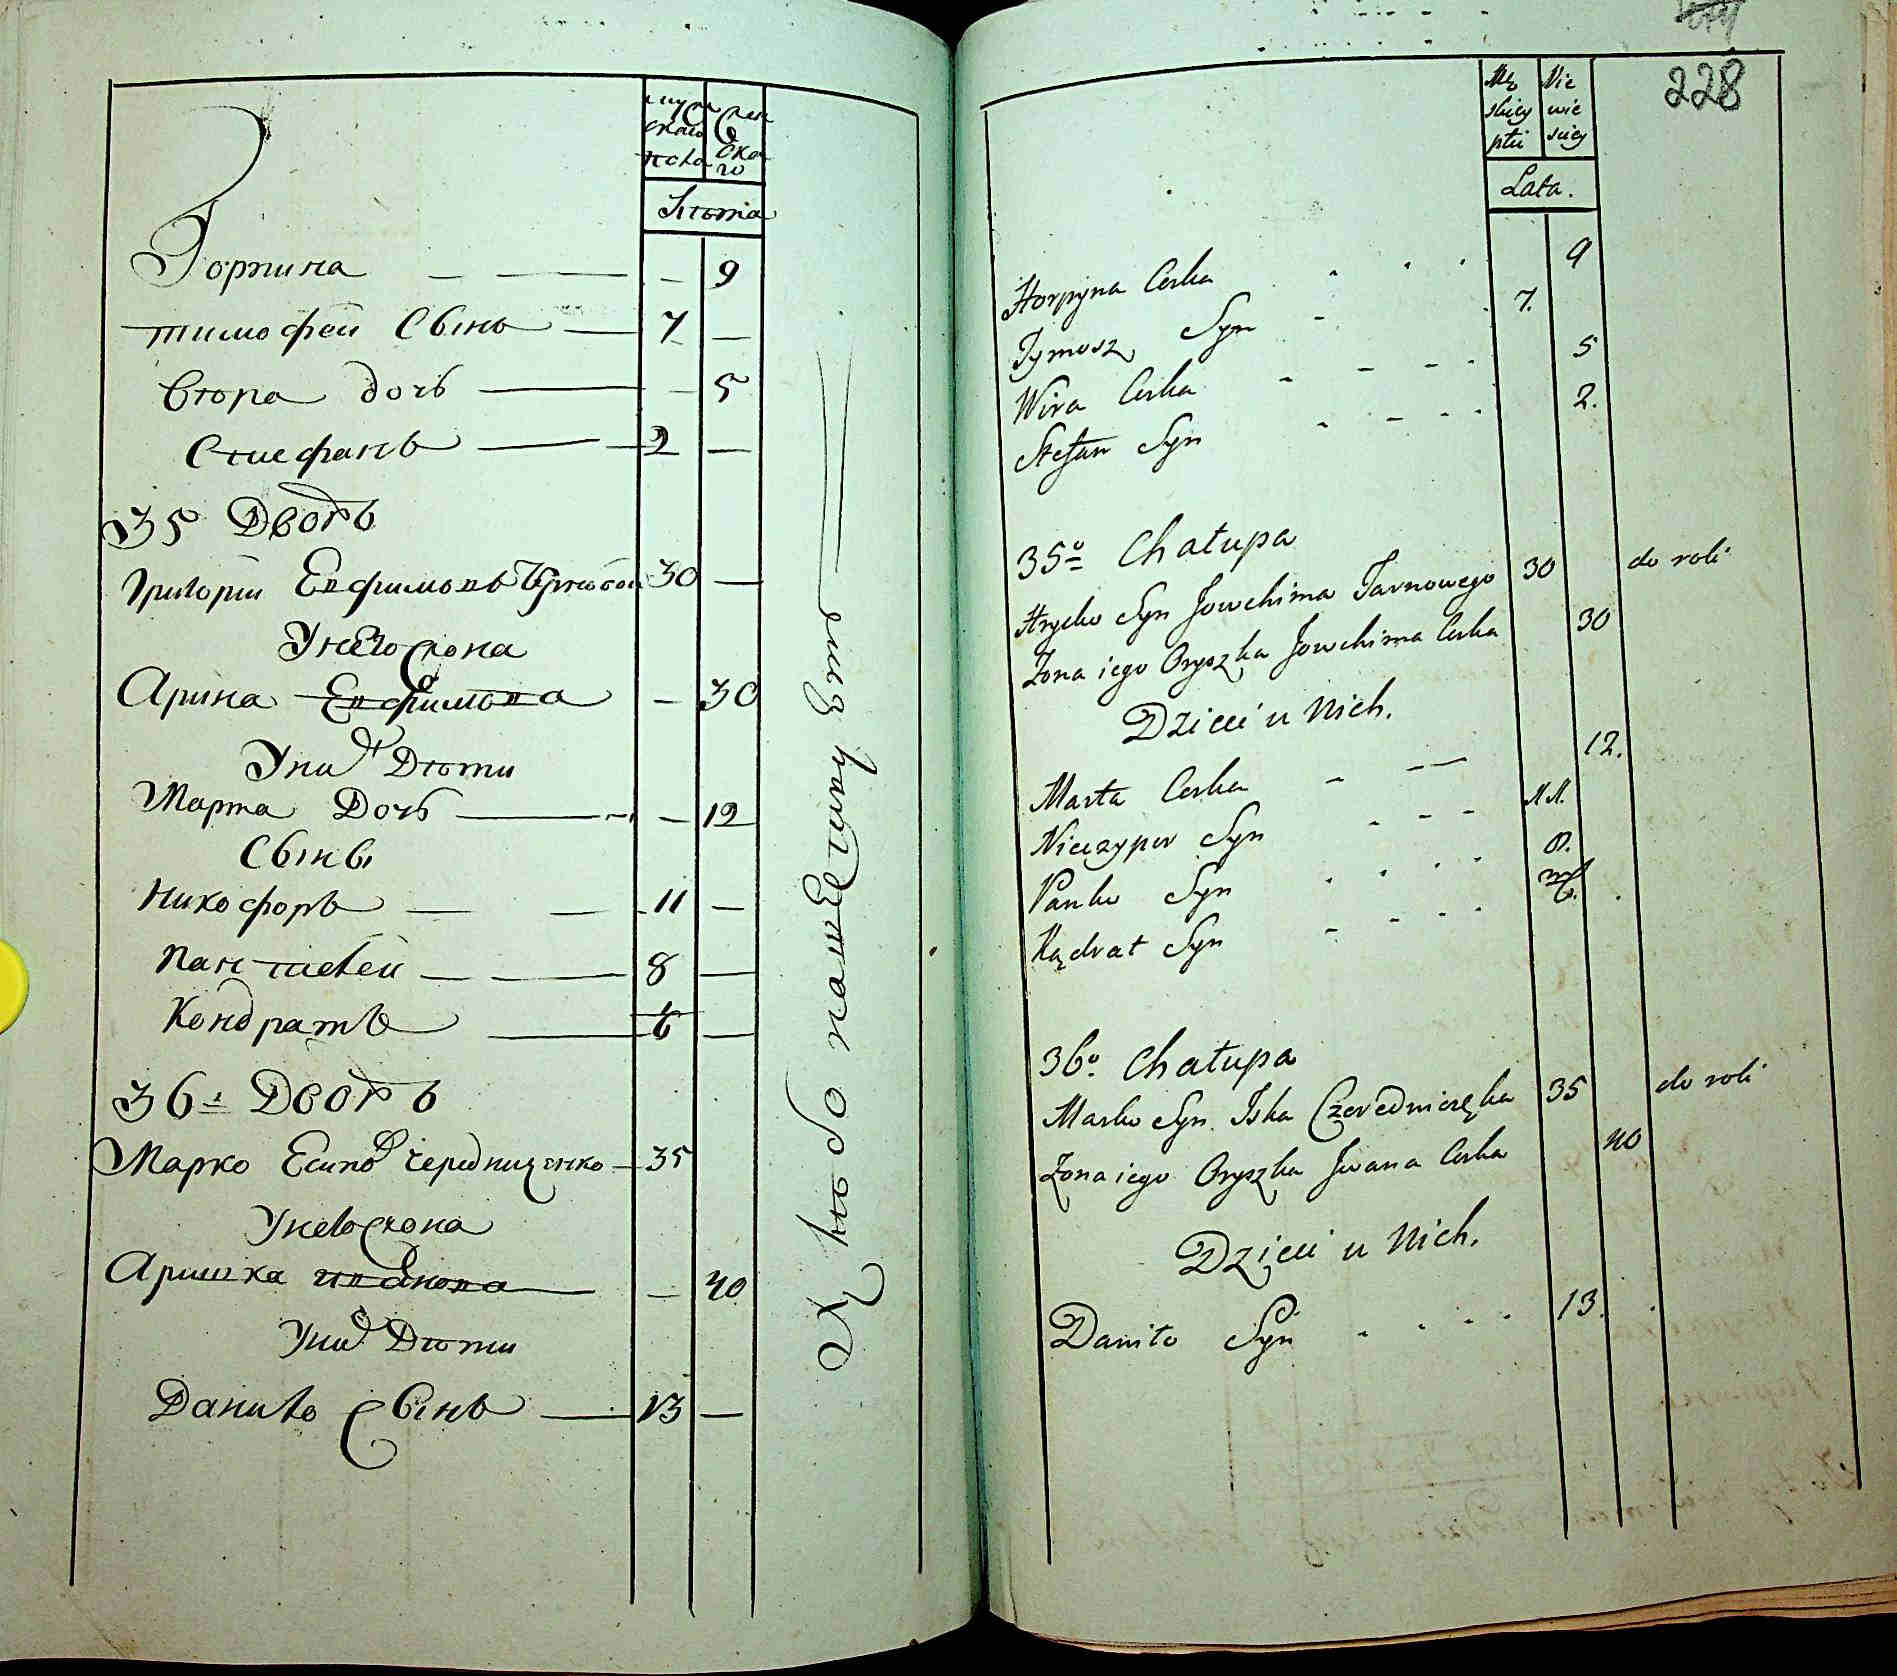 мужеска пола
женска го
Лѣта
Горпина — — — 9
Тимофей Сынъ — 7 —
Вѣра дочь — — 5
Стефанъ — 2 —
35 Дворъ
Григорій Евфимовъ 30 —
У него жона
Арина Евфимова — 30
У них Дѣти
Марта Дочь — — 12
Сыны
Никофоръ — — 11 —
Пантелей — — 8 —
Кондратъ — 6 —
36й Дворъ
Марко Есипов Чередниченко — 35
У него жона
Аришка Иванова — 40
У них Дѣти
Данило Сынъ — 13 —
К хлѣбопашеству
228
Mę skiey płci
Nie wie sciey
Lata.
Horpyna Corka 9
Tymosz Syn 7.
Wira Corka 5
Stefan Syn 2.
35o Chałupa
Hrycko Syn Jowchima Tarnowego 30 do roli
Żona iego Oryszka Jowchima Corka 30
Dzieci u Nich.
Marta Corka 12.
Nieczypor Syn 11.
Panko Syn 8.
Kądrat Syn
36o Chałupa
Marko Syn Iska Czeredniczęka 35 do roli
Żona iego Oryszka Jwana Corka 40
Dzieci u Nich.
Daniło Syn 13.